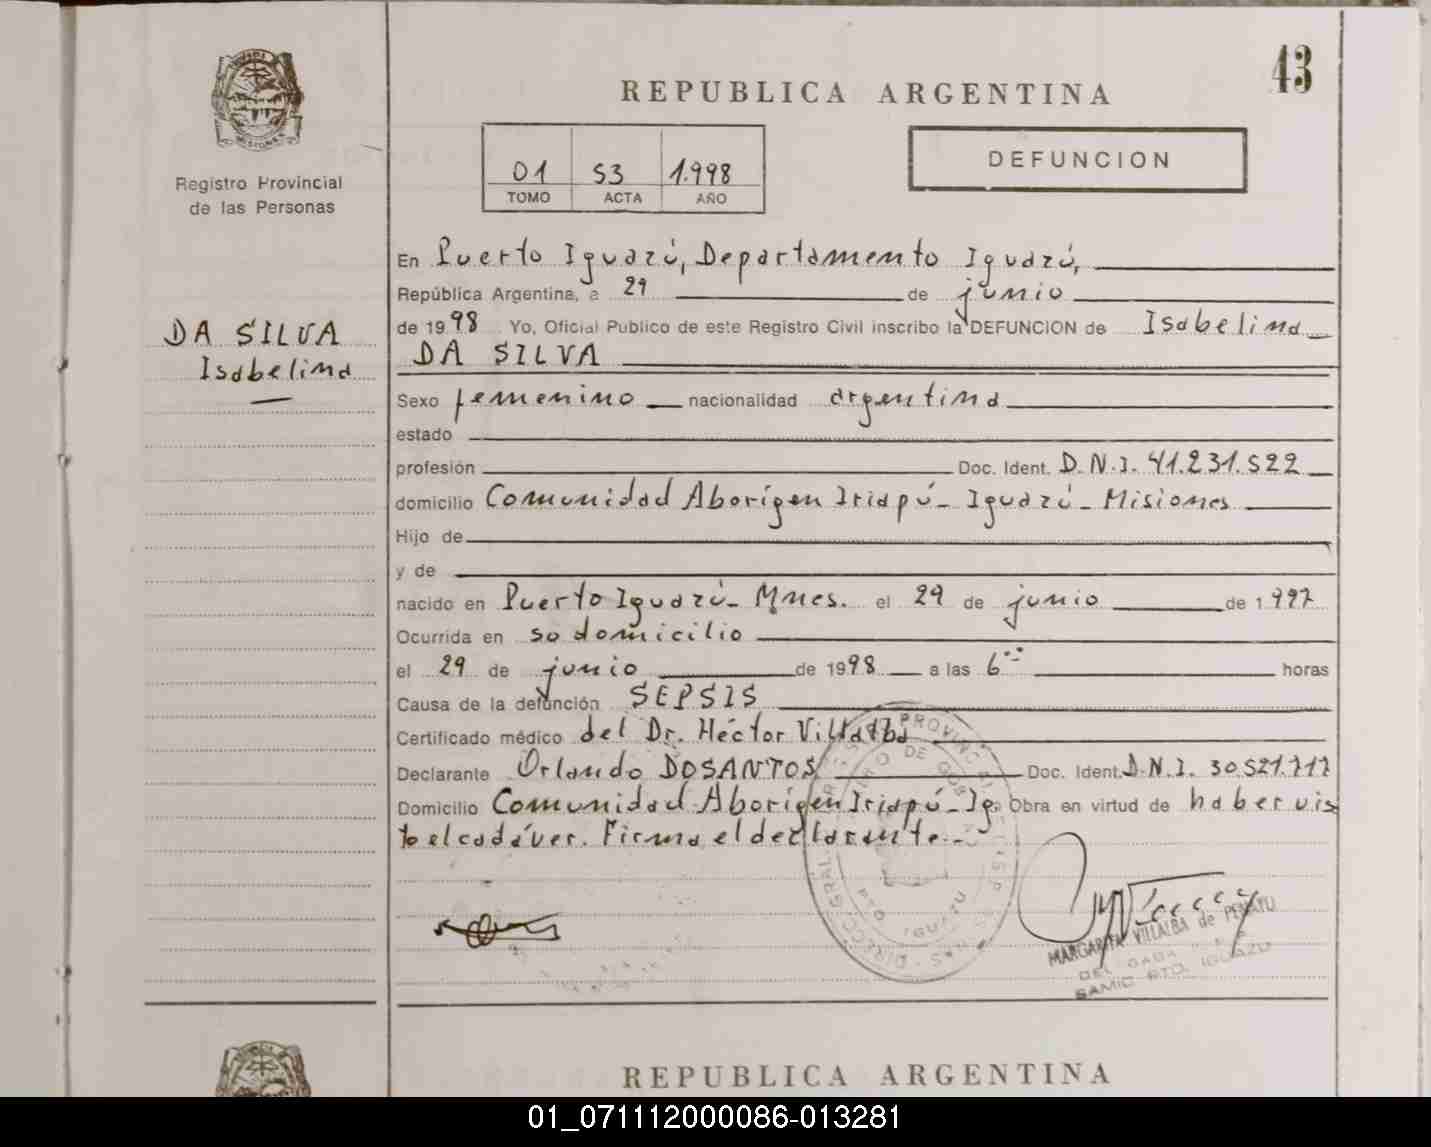 43
REPUBLICA ARGENTINA
MISIONES
Registro Provincial
de las Personas
DEFUNCION
01 53 1.998
TOMO ACTA AÑO
En Puerto Iguazú, Departamento Iguazú,
República Argentina, a 29 de junio
de 1998 Yo, Oficial Publico de este Registro Civil inscribo la DEFUNCION de Isabelina
DA SILVA
DA SILVA
Isabelina
Sexo femenino nacionalidad argentina
estado
profesión Doc. Ident. D.N.I. 41.231.522
domicilio Comunidad Aborígen Iriapú - Iguazú - Misiones
Hijo de
y de
nacido en Puerto Iguazú - Mnes. el 29 de junio de 1997
Ocurrida en su domicilio
el 29 de junio de 1998 a las 6 horas
Causa de la defunción SEPSIS
Certificado médico del Dr. Héctor Villalba
Declarante Orlando DOSANTOS Doc. Ident. D.N.I. 30.521.717
Domicilio Comunidad Aborígen Iriapú - Ig. Obra en virtud de haber vis
to el cadáver. Firma el declarante.-
PTO IGUAZU
MARGARITA VILLALBA de PENAYU
SAMIC PTO. IGUAZU
REPUBLICA ARGENTINA
01_071112000086-013281